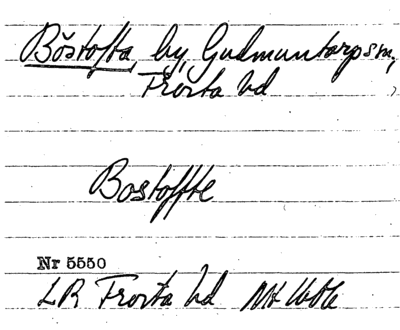 Böstofta, by, Gudmuntorp sn,
Frosta hd
Bostoffte
Nr 5550
LR Frosta hd